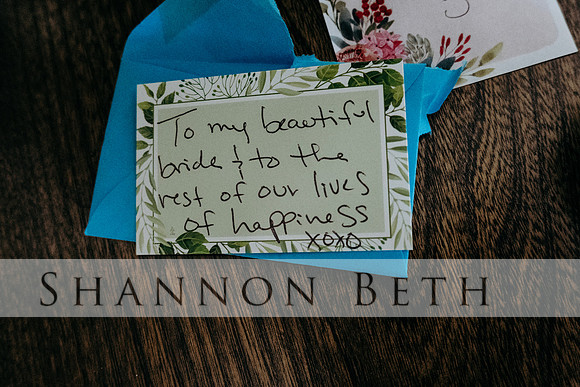 To my beautiful
bride & to the
rest of our lives
of happiness
xoxo
SHANNON BETH